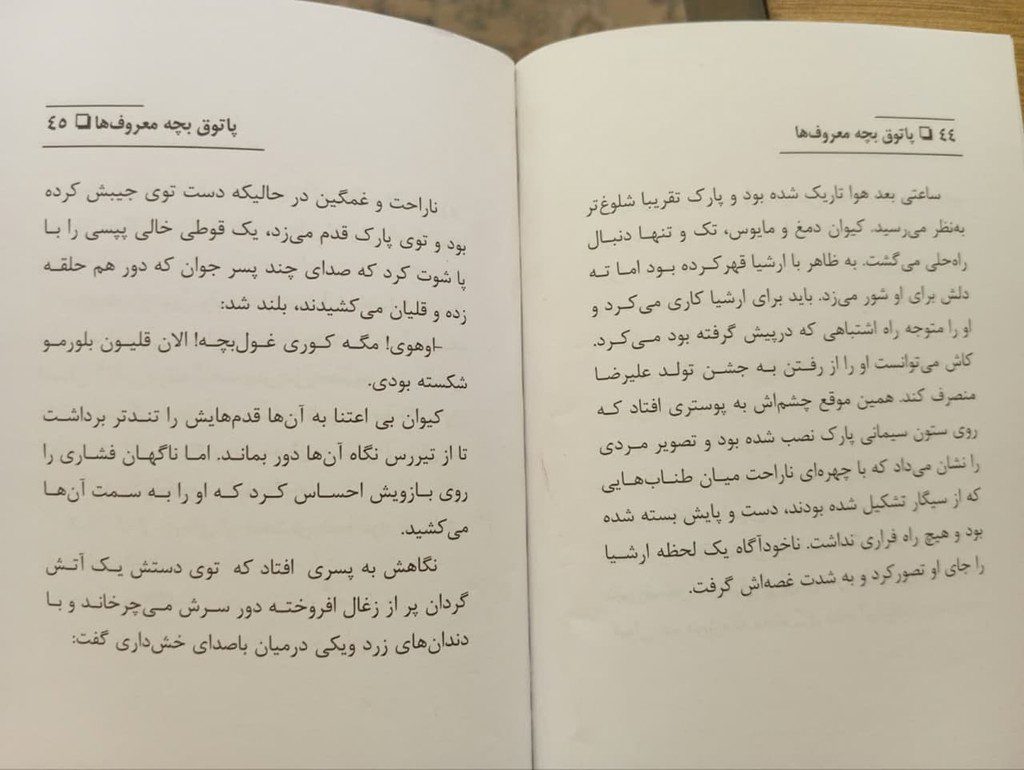 ٤٤ ❑ پاتوق بچه معروف‌ها
ساعتی بعد هوا تاریک شده بود و پارک تقریبا شلوغ‌تر
به‌نظر می‌رسید. کیوان دمغ و مایوس، تک و تنها دنبال
راه‌حلی می‌گشت. به ظاهر با ارشیا قهرکرده بود اما ته
دلش برای او شور می‌زد. باید برای ارشیا کاری می‌کرد و
او را متوجه راه اشتباهی که درپیش گرفته بود می‌کرد.
کاش می‌توانست او را از رفتن به جشن تولد علیرضا
منصرف کند. همین موقع چشم‌اش به پوستری افتاد که
روی ستون سیمانی پارک نصب شده بود و تصویر مردی
را نشان می‌داد که با چهره‌ای ناراحت میان طناب‌هایی
که از سیگار تشکیل شده بودند، دست و پایش بسته شده
بود و هیچ راه فراری نداشت. ناخودآگاه یک لحظه ارشیا
را جای او تصورکرد و به شدت غصه‌اش گرفت.
پاتوق بچه معروف‌ها ❑ ٤٥
ناراحت و غمگین در حالیکه دست توی جیبش کرده
بود و توی پارک قدم می‌زد، یک قوطی خالی پپسی را با
پا شوت کرد که صدای چند پسر جوان که دور هم حلقه
زده و قلیان می‌کشیدند، بلند شد:
-اوهوی! مگه کوری غول‌بچه! الان قلیون بلورمو
شکسته بودی.
کیوان بی اعتنا به آن‌ها قدم‌هایش را تندتر برداشت
تا از تیررس نگاه آن‌ها دور بماند. اما ناگهان فشاری را
روی بازویش احساس کرد که او را به سمت آن‌ها
می‌کشید.
نگاهش به پسری افتاد که توی دستش یک آتش
گردان پر از زغال افروخته دور سرش می‌چرخاند و با
دندان‌های زرد ویکی درمیان باصدای خش‌داری گفت: